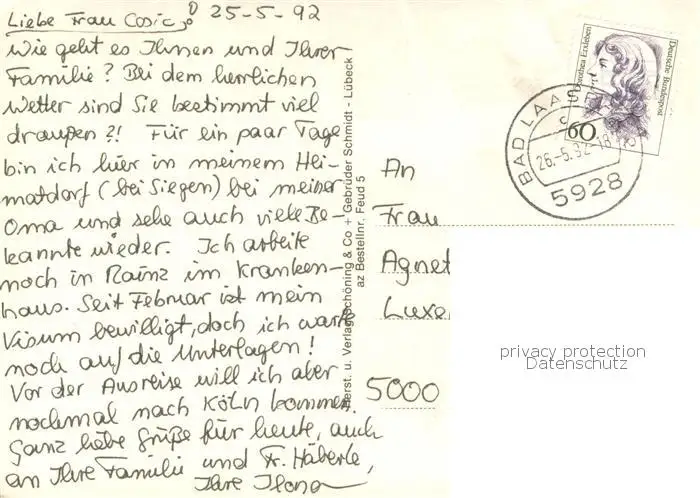 Liebe Frau Cosic, 25-5-92
Wie geht es Ihnen und Ihrer
Familie? Bei dem herrlichen
Wetter sind Sie bestimmt viel
draußen?! Für ein paar Tage
bin ich hier in meinem Hei-
matdorf (bei Siegen) bei meiner
Oma und sehe auch viele Be-
kannte wieder. Ich arbeite
noch in Mainz im Kranken-
haus. Seit Februar ist mein
Visum bewilligt, doch ich warte
noch auf die Unterlagen!
Vor der Ausreise will ich aber
nochmal nach Köln kommen.
Ganz liebe Grüße für heute, auch
an Ihre Familie und Fr. Häberle,
Ihre Ilona
Herst. u. Verlag Schöning & Co + Gebrüder Schmidt - Lübeck
az Bestellnr. Feud 5
Dorothea Erxleben
Deutsche Bundespost
60
BAD LAAS
26.-5.92-18
5928
An
Frau
Agnet
Luxe
5000
privacy protection
Datenschutz